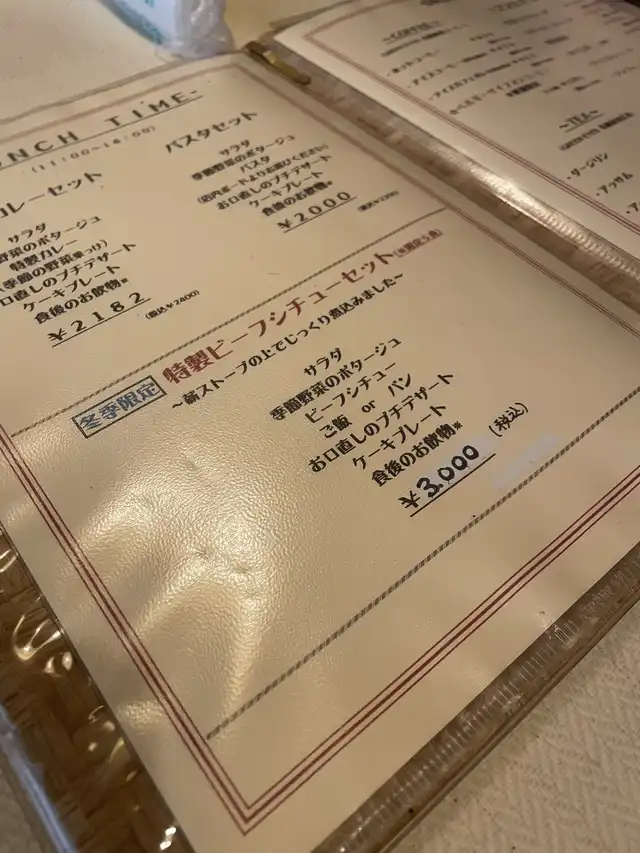 NCH TIME-
(11:00~14:00)
カレーセット
サラダ
野菜のポタージュ
特製カレー
(季節の野菜乗っり)
口直しのプチデザート
ケーキプレート
食後のお飲物※
¥2182
(税込¥2400)
パスタセット
サラダ
季節野菜のポタージュ
パスタ
(店内ボードよりお選びください)
お口直しのプチデザート
ケーキプレート
食後のお飲物※
¥2000
(税込¥2200)
冬季限定
特製ビーフシチューセット(※限定5食)
~薪ストーブの上でじっくり煮込みました~
サラダ
季節野菜のポタージュ
ビーフシチュー
ご飯 or パン
お口直しのプチデザート
ケーキプレート
食後のお飲物※
¥3,000 (税込)
~COFFEE~
・ホットコーヒー
・アイスコーヒー
・アイスカフェオレ
~TEA~
・ダージリン
・アッサム